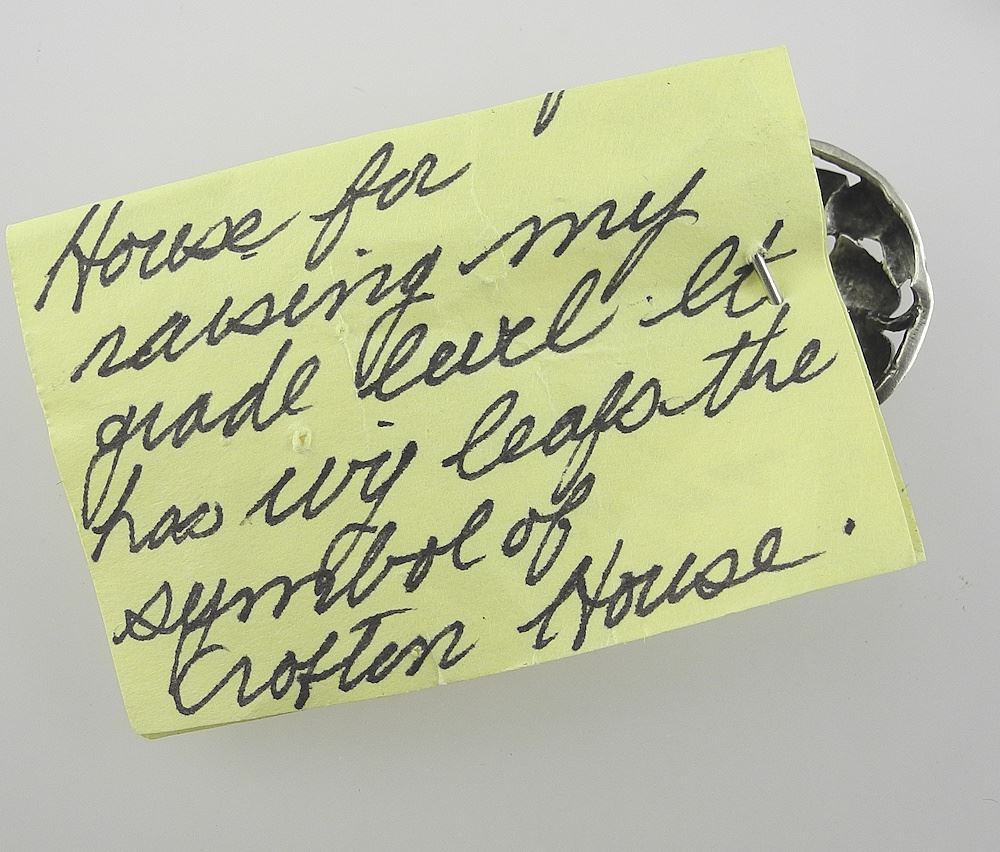 House for
raising my
grade level It
has ivy leafs the
symbol of
Crofton House.